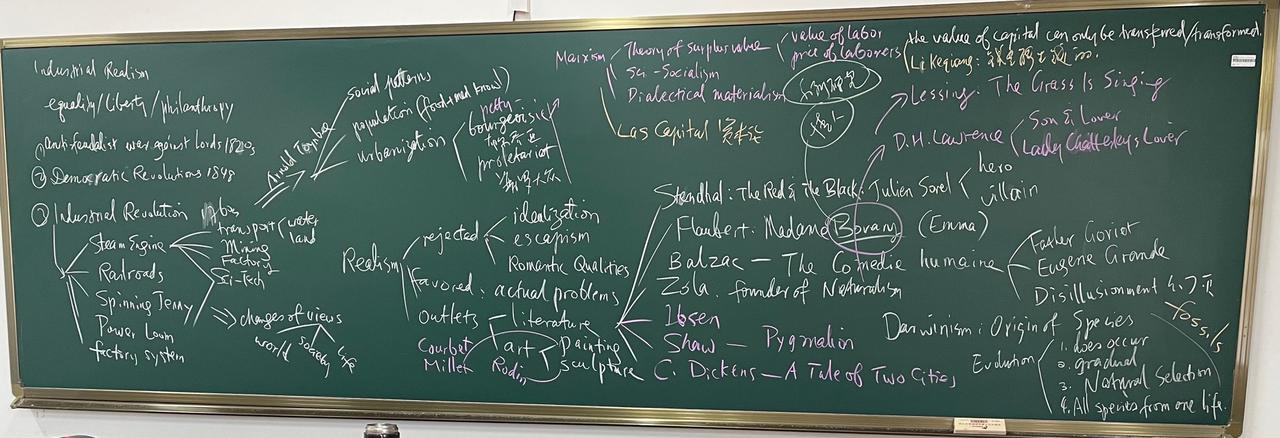 Industrial Realism
equality/liberty/philanthropy
anti feudalist war against lords 1820s
② Democratic Revolutions 1848
③ Industrial Revolution
Steam Engine
Railroads
Spinning Jenny
Power Loum
factory system
transport
water
land
Mining
Factory
Sci-Tech
changes of views
world
society
life
Arnold Toynbee
social patterns
population (food, med know)
urbanization
petty
bourgeoisie
proletariat
Realism
rejected
idealization
escapism
Romantic Qualities
favored: actual problems
Outlets
literature
art
painting
sculpture
Courbet
Millet
Rodin
Marxism
Theory of surplus value
value of labor
price of laborers
the value of capital can only be transferred/transformed.
Li Keqiang:
Sci-Socialism
Dialectical materialism
Las Capital 资本论
Lessing: The Grass Is Singing
D.H. Lawrence
Son & Lover
Lady Chatterley's Lover
Stendhal: The Red & The Black: Julien Sorel
hero
villain
Flaubert: Madame Bovary (Emma)
Balzac — The Comedie humaine
Father Goriot
Eugenie Grande
Disillusionment
Zola. founder of Naturalism
Ibsen
Shaw — Pygmalion
C. Dickens — A Tale of Two Cities
Darwinism: Origin of Species
fossils
Evolution
1. does occur
2. gradual
3. Natural Selection
4. All species from one life.